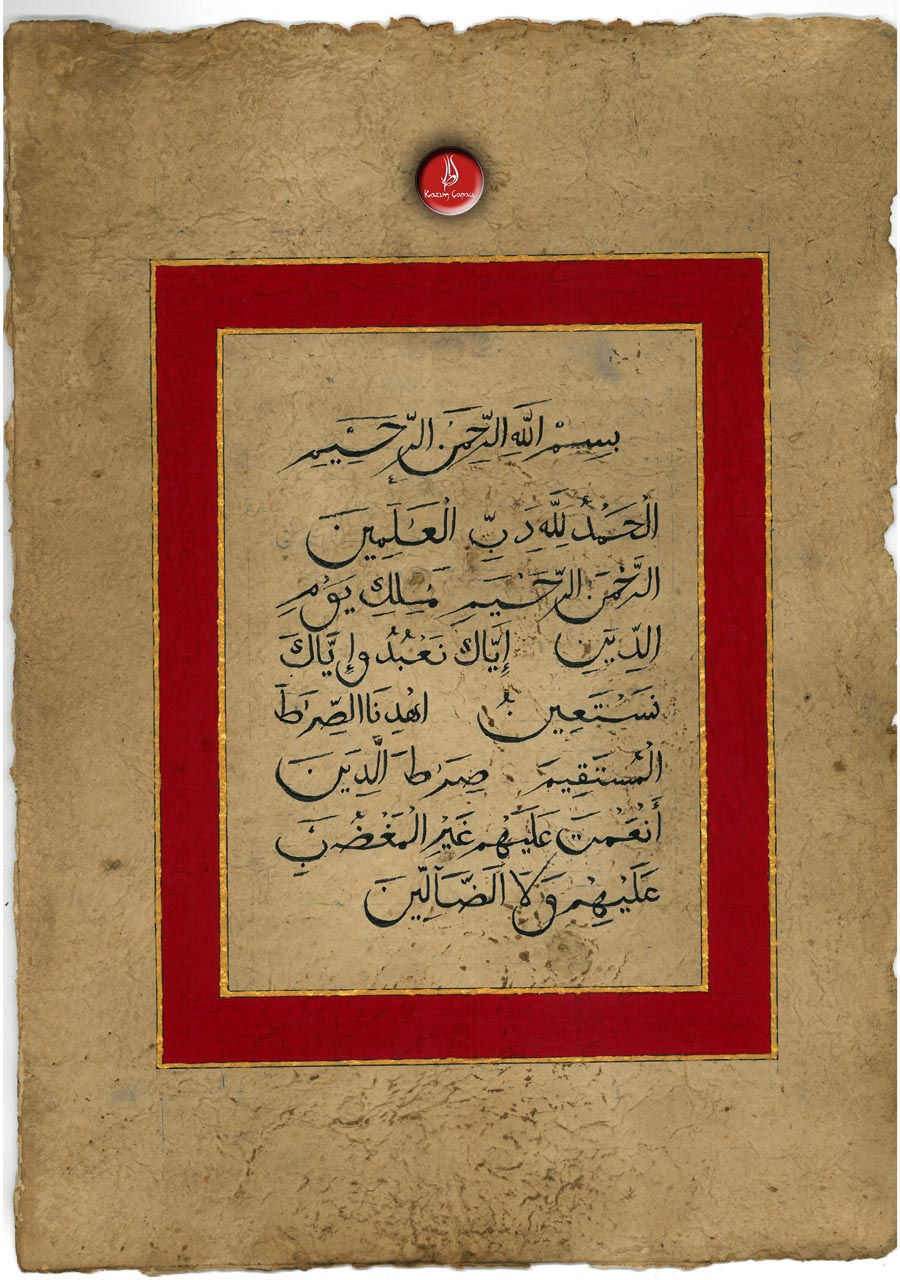 Kazım Çapacı
بِسْمِ اللَّهِ الرَّحْمَنِ الرَّحِيمِ
الْحَمْدُ لِلَّهِ رَبِّ الْعَٰلَمِينَ
الرَّحْمَنِ الرَّحِيمِ مَٰلِكِ يَوْمِ
الدِّينِ إِيَّاكَ نَعْبُدُ وَإِيَّاكَ
نَسْتَعِينُ اهْدِنَا الصِّرَٰطَ
الْمُسْتَقِيمَ صِرَٰطَ الَّذِينَ
أَنْعَمْتَ عَلَيْهِمْ غَيْرِ الْمَغْضُوبِ
عَلَيْهِمْ وَلَا الضَّآلِّينَ